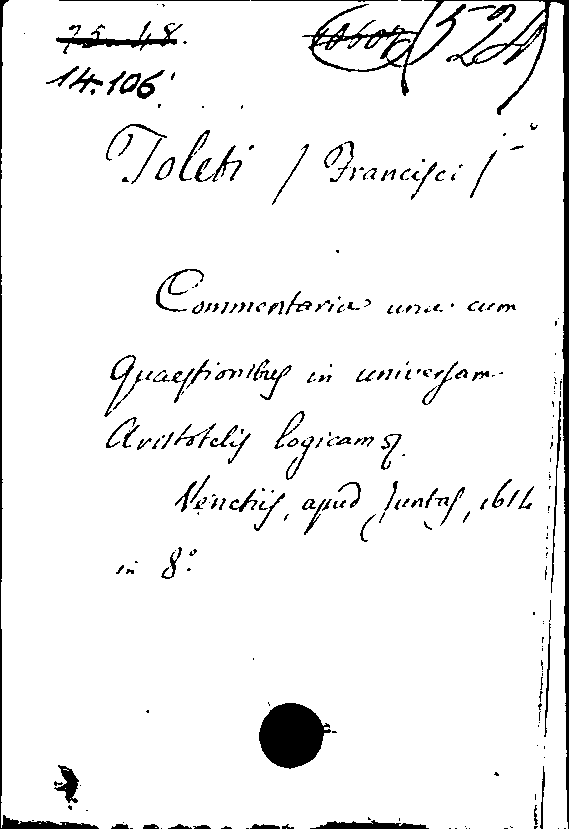 75.48.
14.106.
Toleti / Francisci /
Commentaria una cum
Quaestionibus in universam
Aristotelis logicam
Venetiis, apud Juntas, 1614
in 8°